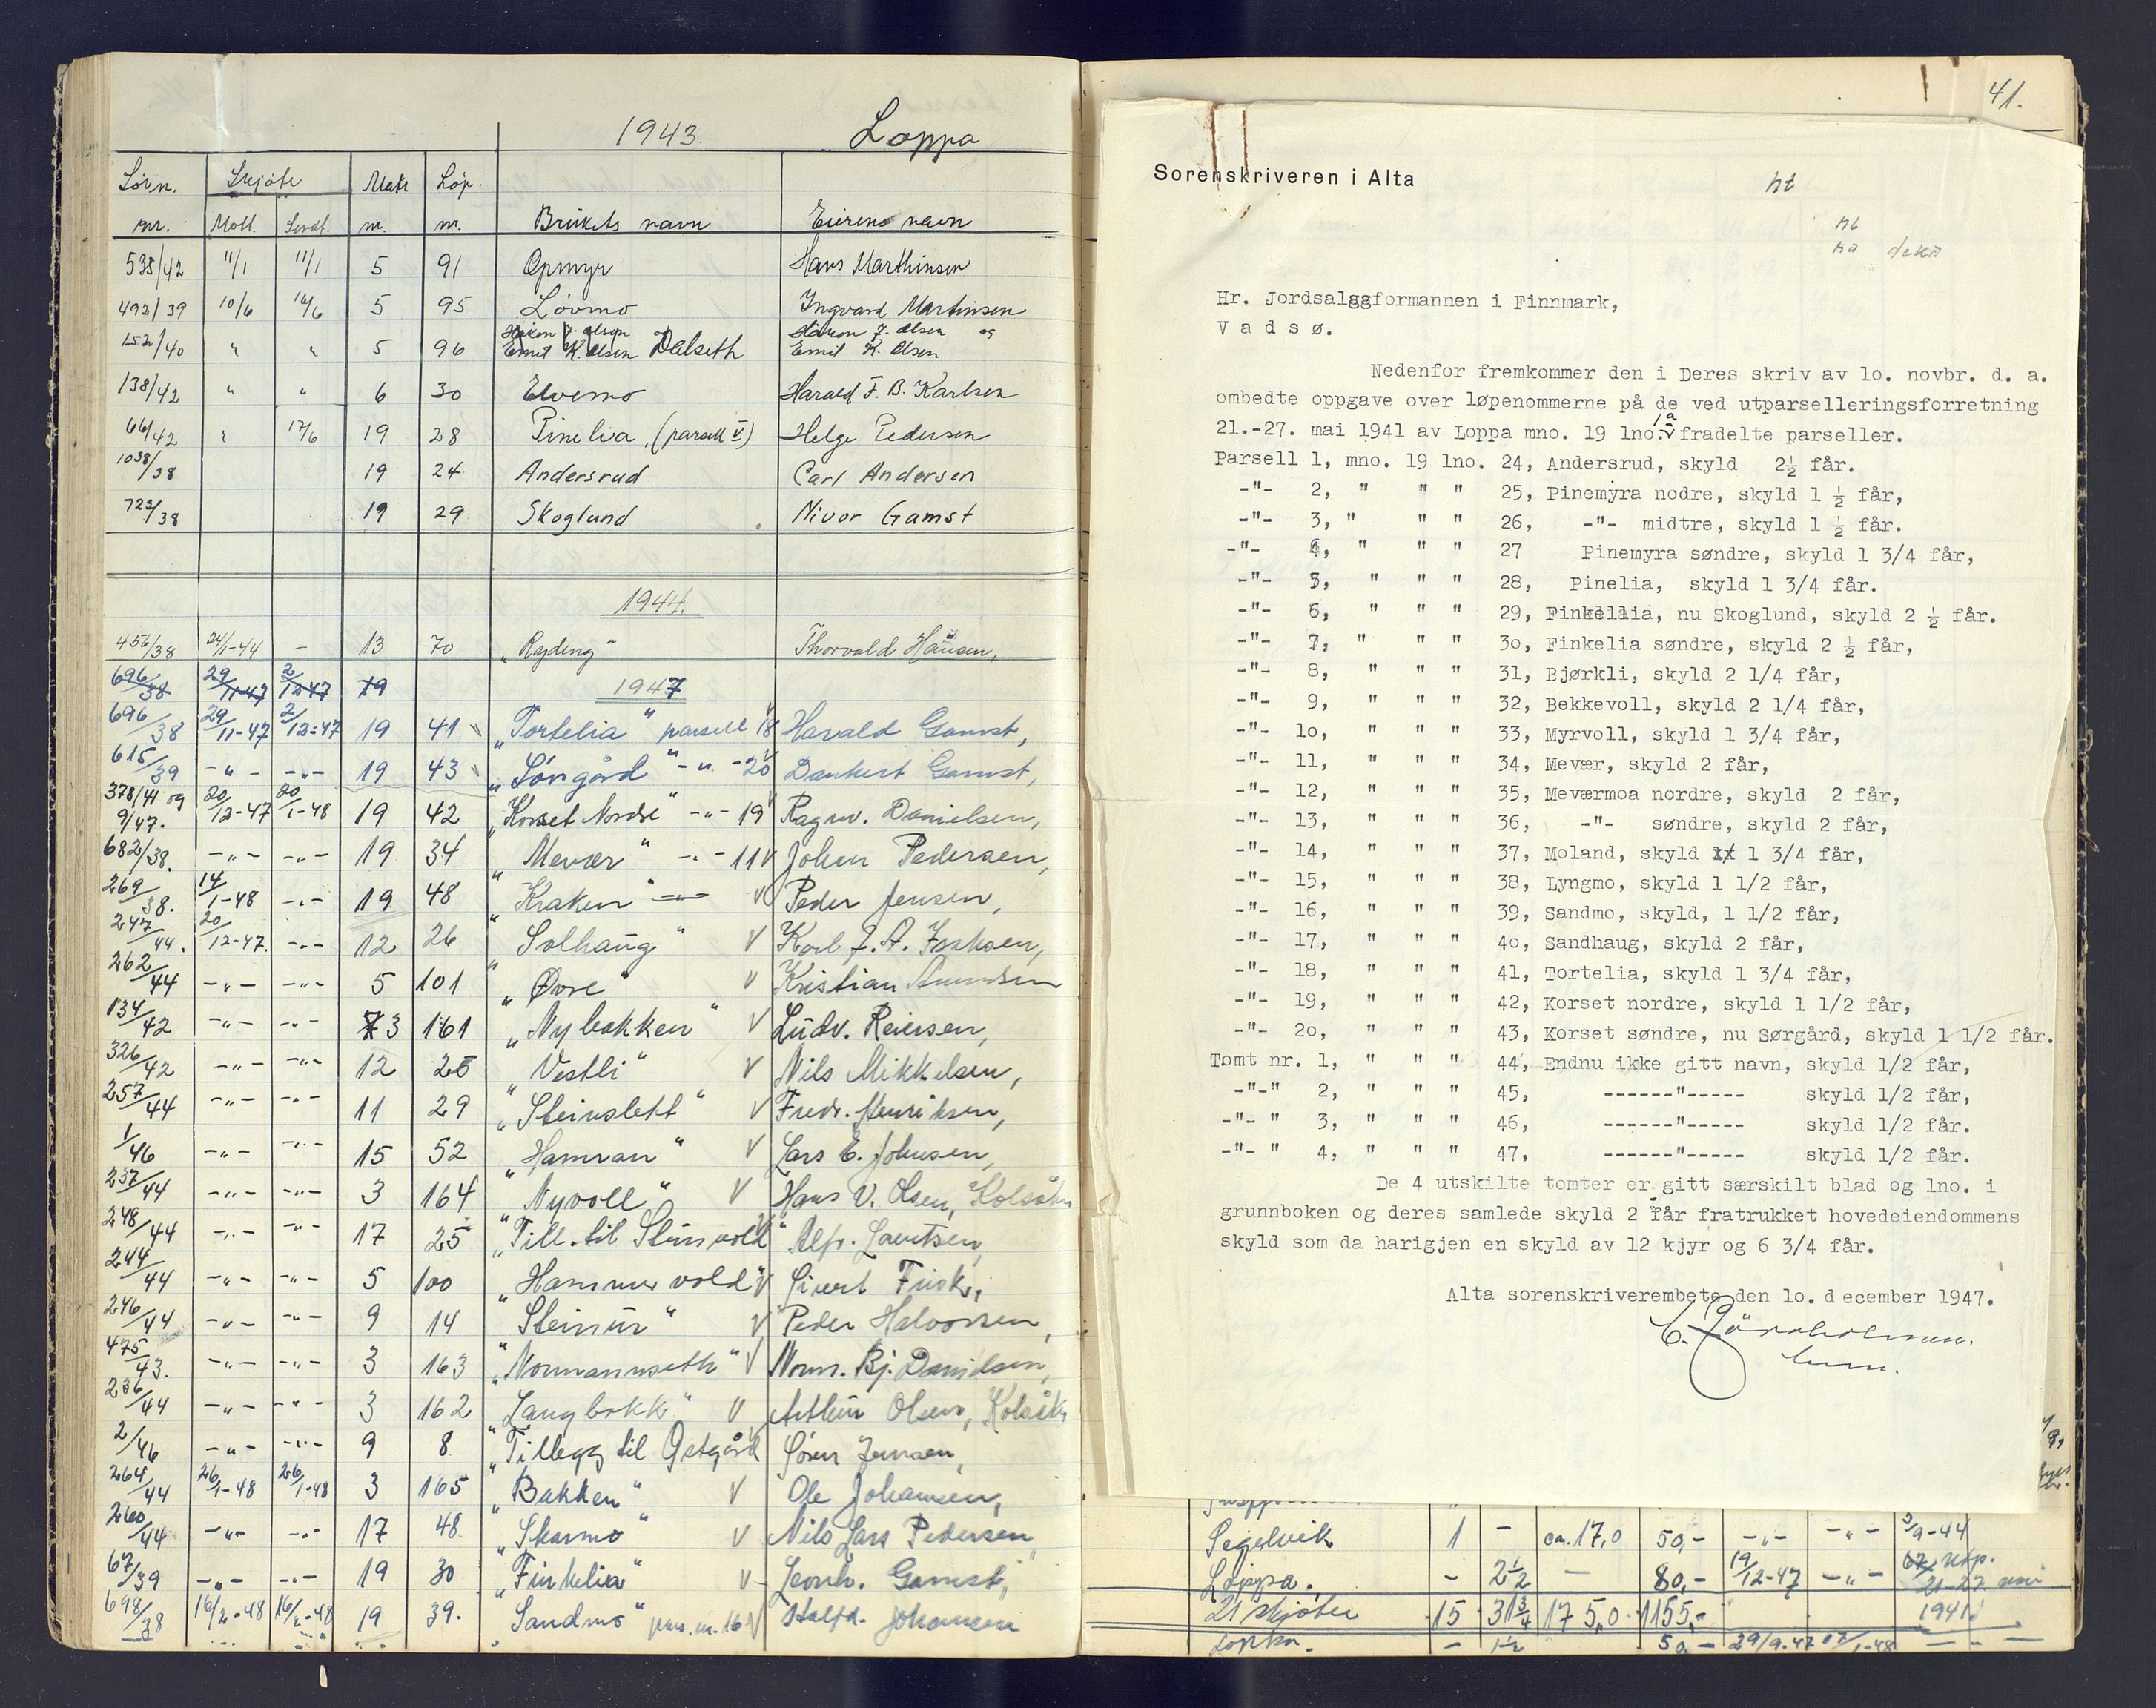 1943. Loppa
Skjøte Matr Løp.
nr. Mott. Sendt. nr. nr. Brukets navn Eierens navn
538/42 11/1 11/1 5 91 Opmyr Hans Marthinsen
492/39 10/6 16/6 5 95 Løvmo Ingvard Martinsen
152/40 " " 5 96 Håkon J. Olsen og Emil K. Olsen Dalseth Håkon J. Olsen og Emil K. Olsen
138/42 " " 6 30 Elvemo Harald F. B. Karlsen
66/42 " 17/6 19 28 Pinelia, (parsell V) Helge Pedersen
1038/38 19 24 Andersrud Carl Andersen
723/38 19 29 Skoglund Nivor Gamst
1944.
456/38 24/1-44 - 13 70 „Ryding" Thorvald Hansen,
696/38 29/11-47 2/12-47 19 1947
696/38 29/11-47 2/12-47 19 41 „Tortelia" parsell 18 Harald Gamst,
615/39 -"- -"- 19 43 „Sørgård" -"- 20 Dankert Gamst,
378/41 og 9/47. 20/12-47 20/1-48 19 42 „Korset Nordre" -"- 19 Ragnv. Danielsen,
682/38. -"- -"- 19 34 „Mevær" -"- 11 V Johan Pedersen,
269/38. 14/1-48 -"- 19 48 „Kraken" -"- V Peder Jensen,
247/44. 20/12-47. -"- 12 26 „Solhaug" V Karl J. A. Isaksen,
262/44 -"- -"- 5 101 „Øvre" V Kristian Amundsen
134/42 -"- -"- 3 161 „Nybakken" V Ludv. Reiersen,
326/42 -"- -"- 12 25 „Vestli" V Nils Mikkelsen,
257/44 -"- -"- 11 29 „Steinslett" V Fredr. Henriksen,
1/46 -"- -"- 15 52 „Hamran" V Lars E. Johnsen,
237/44 -"- -"- 3 164 „Nyvoll" V Hans V. Olsen,
248/44 -"- -"- 17 25 „Till. til Steinvold" Alfr. Lauritsen,
244/44 -"- -"- 5 100 „Hammervold" V Sivert Frisk,
246/44 -"- -"- 9 14 „Steinur" V Peder Halvorsen,
475/43. -"- -"- 3 163 „Normannseth" V Norm. Bj. Danielsen,
236/44 -"- -"- 3 162 „Langbakk" V Arthur Olsen,
2/46 -"- -"- 9 8 „Tillegg til Østgård Søren Jensen,
264/44 26/1-48 26/1-48 3 165 „Bakken" V Ole Johansen,
260/44 -"- -"- 17 48 „Skarmo" V Nils Lars Pedersen
67/39 -"- -"- 19 30 „Finkelia" V Leonh. Gamst,
698/38 16/2-48 16/2-48 19 39. „Sandmo" pars. nr. 16 V Johansen
41.
Sorenskriveren i Alta
Hr. Jordsalggformannen i Finnmark,
V a d s ø.
Nedenfor fremkommer den i Deres skriv av lo. novbr. d. a.
ombedte oppgave over løpenommerne på de ved utparselleringsforretning
21.-27. mai 1941 av Loppa mno. 19 lno. 1a fradelte parseller.
Parsell 1, mno. 19 lno. 24, Andersrud, skyld 2½ får.
-"- 2, " " " 25, Pinemyra nodre, skyld 1 ½ får,
-"- 3, " " " 26, -"- midtre, skyld 1 ½ får.
-"- 4, " " " 27 Pinemyra søndre, skyld 1 3/4 får,
-"- 5, " " " 28, Pinelia, skyld 1 3/4 får.
-"- 6, " " " 29, Finkellia, nu Skoglund, skyld 2 ½ får.
-"- 7, " " " 3o, Finkelia søndre, skyld 2 ½ får,
-"- 8, " " " 31, Bjørkli, skyld 2 1/4 får,
-"- 9, " " " 32, Bekkevoll, skyld 2 1/4 får,
-"- lo, " " " 33, Myrvoll, skyld 1 3/4 får,
-"- 11, " " " 34, Mevær, skyld 2 får,
-"- 12, " " " 35, Meværmoa nordre, skyld 2 får,
-"- 13, " " " 36, -"- søndre, skyld 2 får,
-"- 14, " " " 37, Moland, skyld 1 3/4 får,
-"- 15, " " " 38, Lyngmo, skyld 1 1/2 får,
-"- 16, " " " 39, Sandmo, skyld, 1 1/2 får,
-"- 17, " " " 4o, Sandhaug, skyld 2 får,
-"- 18, " " " 41, Tortelia, skyld 1 3/4 får,
-"- 19, " " " 42, Korset nordre, skyld 1 1/2 får,
-"- 2o, " " " 43, Korset søndre, nu Sørgård, skyld 1 1/2 får.
Tomt nr. 1, " " " 44, Endnu ikke gitt navn, skyld 1/2 får,
-"-" 2, " " " 45, ------"----- skyld 1/2 får,
-"- " 3, " " " 46, ------"----- skyld 1/2 får.
-"- " 4, " " " 47, ------"----- skyld 1/2 får.
De 4 utskilte tomter er gitt særskilt blad og lno. i
grunnboken og deres samlede skyld 2 får fratrukket hovedeiendommens
skyld som da harigjen en skyld av 12 kjyr og 6 3/4 får.
Alta sorenskriverembete den lo. d ecember 1947.
Segelvik 1 - ca. 17,0 50,- -"- -"- 9-44
Loppa. - 2½ - 80,- 19/12-47 -"- 21-27 mai
21 skjøter 15 31¾ 175,0 1155,- 1941
Loppa. - 1½ 50,- 29/9-47